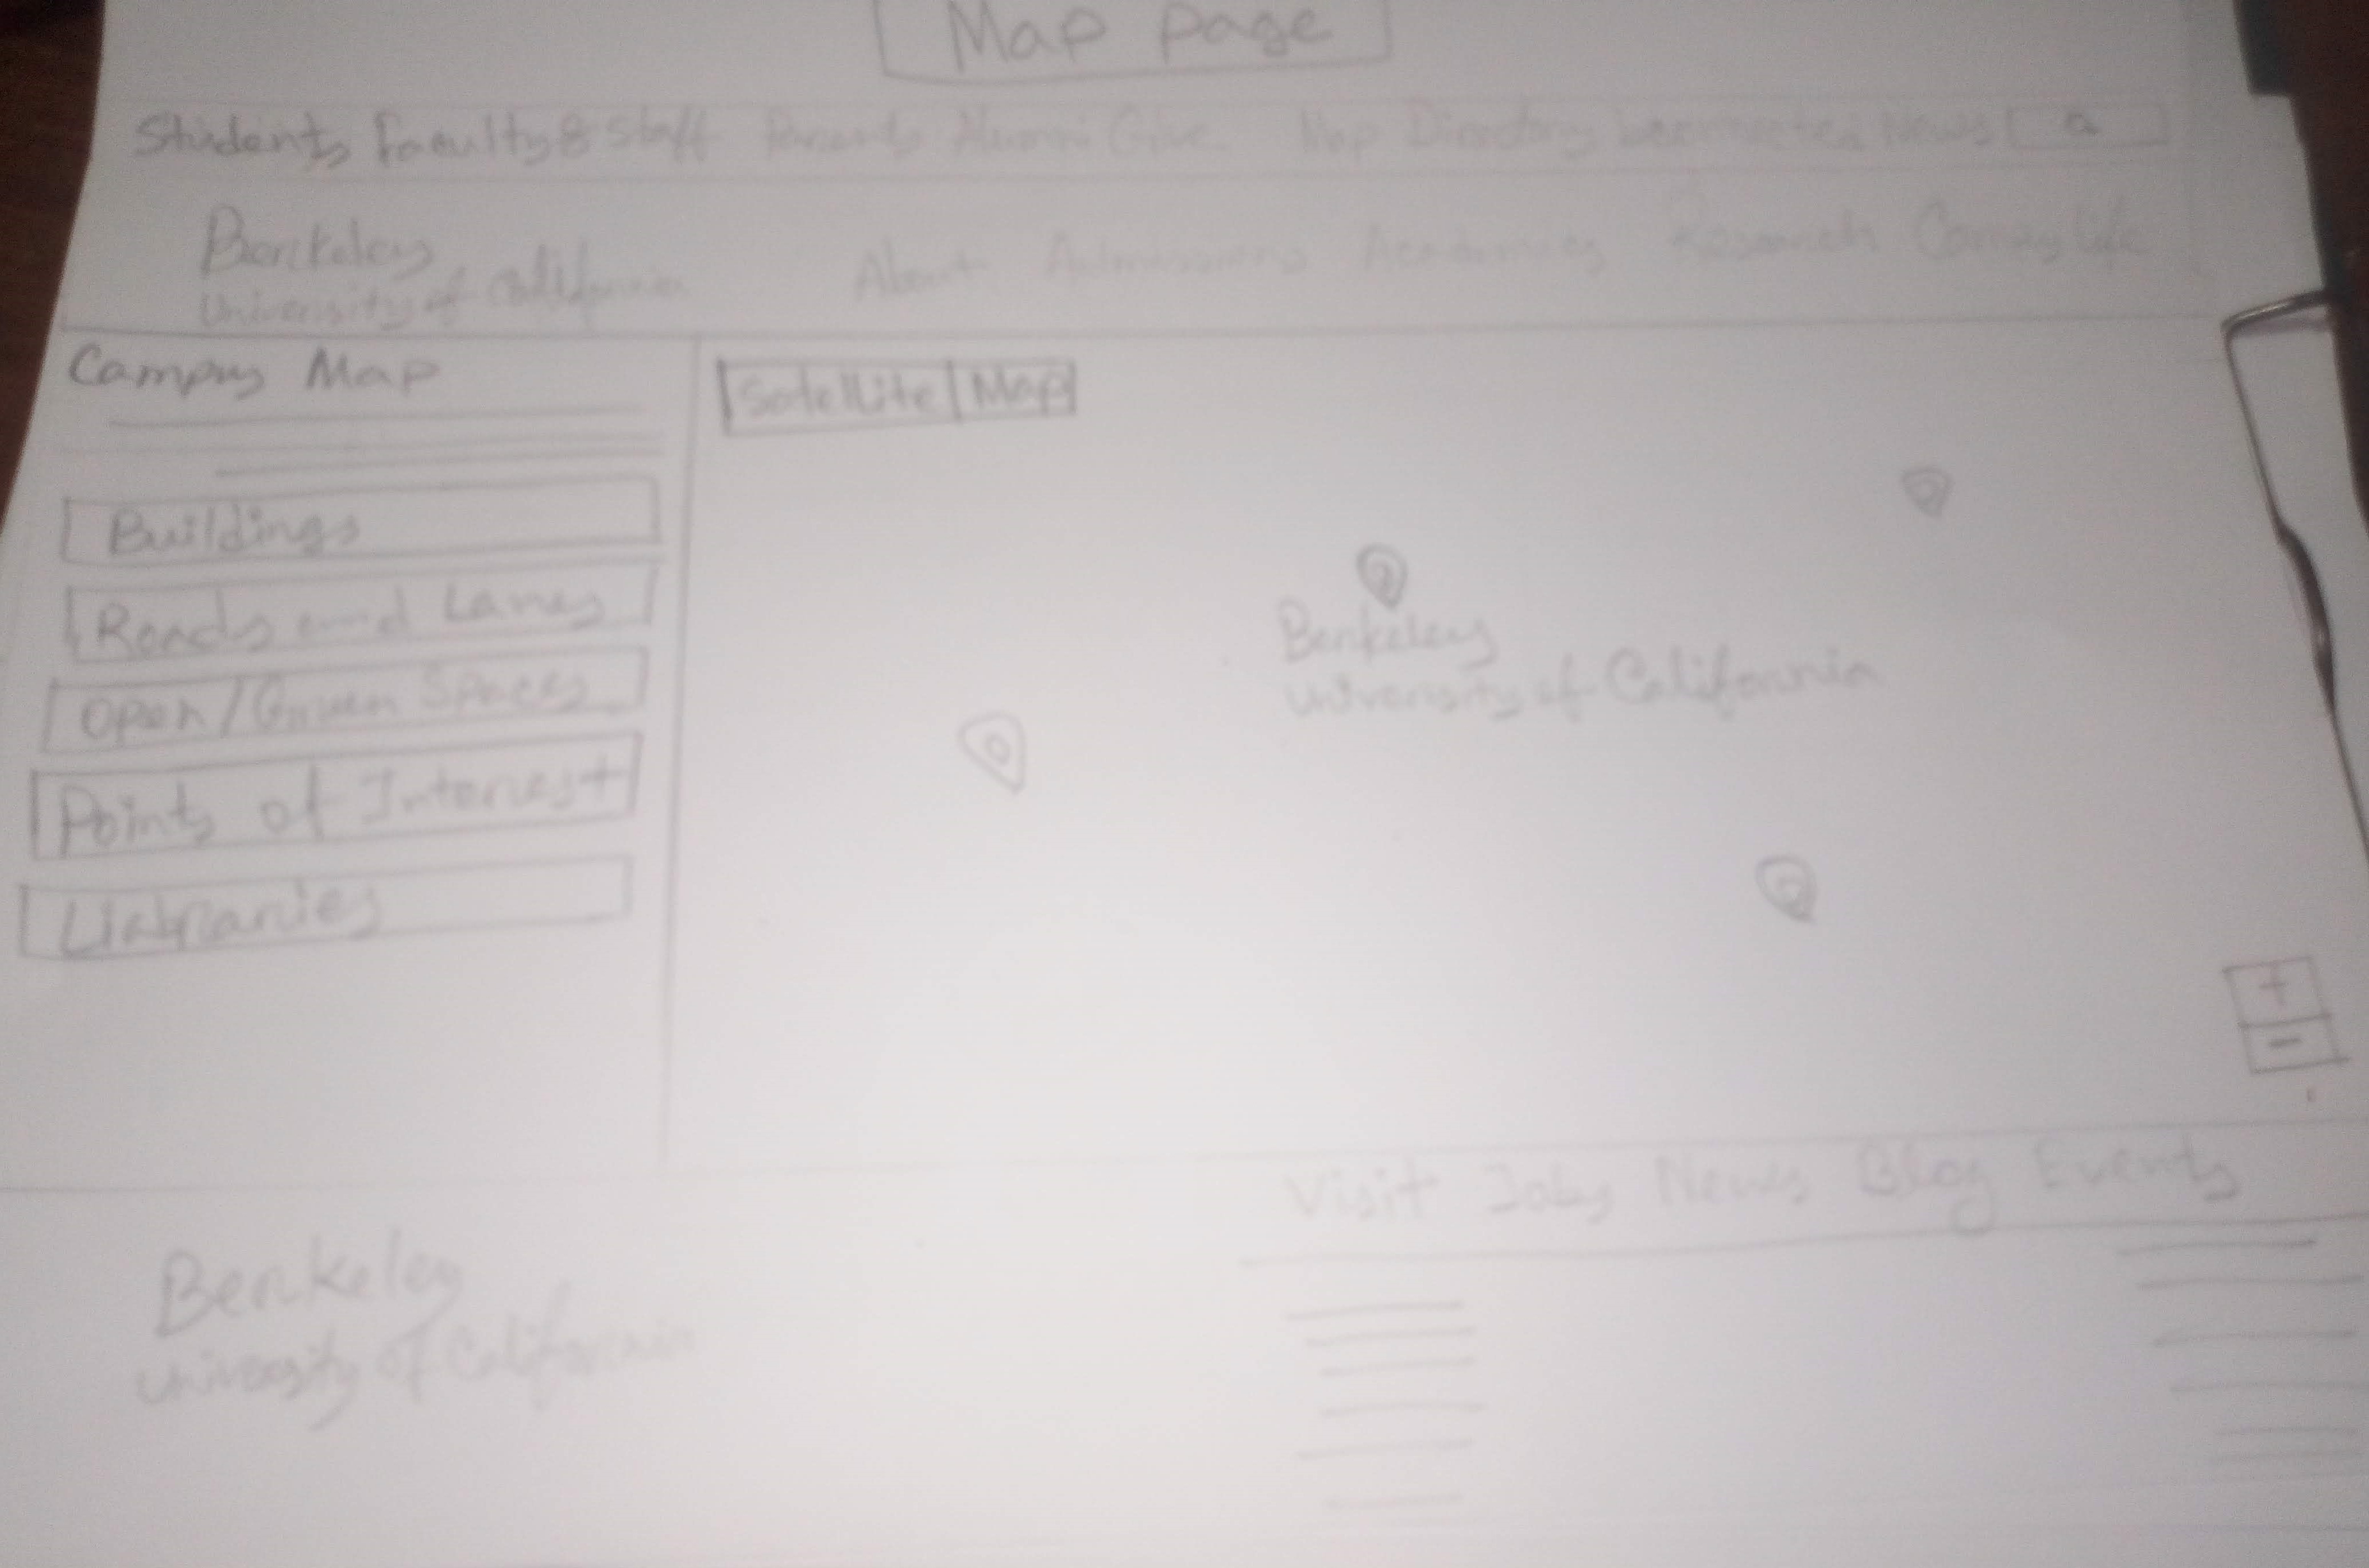 Map page
Students Faculty & Staff Parents Alumni Give Map Directory News
Berkeley
University of California
About Admissions Academics Research Campus life
Campus Map
Satellite Map
Buildings
Roads and Lanes
Open/Green Spaces
Points of Interest
Libraries
Berkeley
University of California
+
-
Visit Jobs News Blog Events
Berkeley
University of California